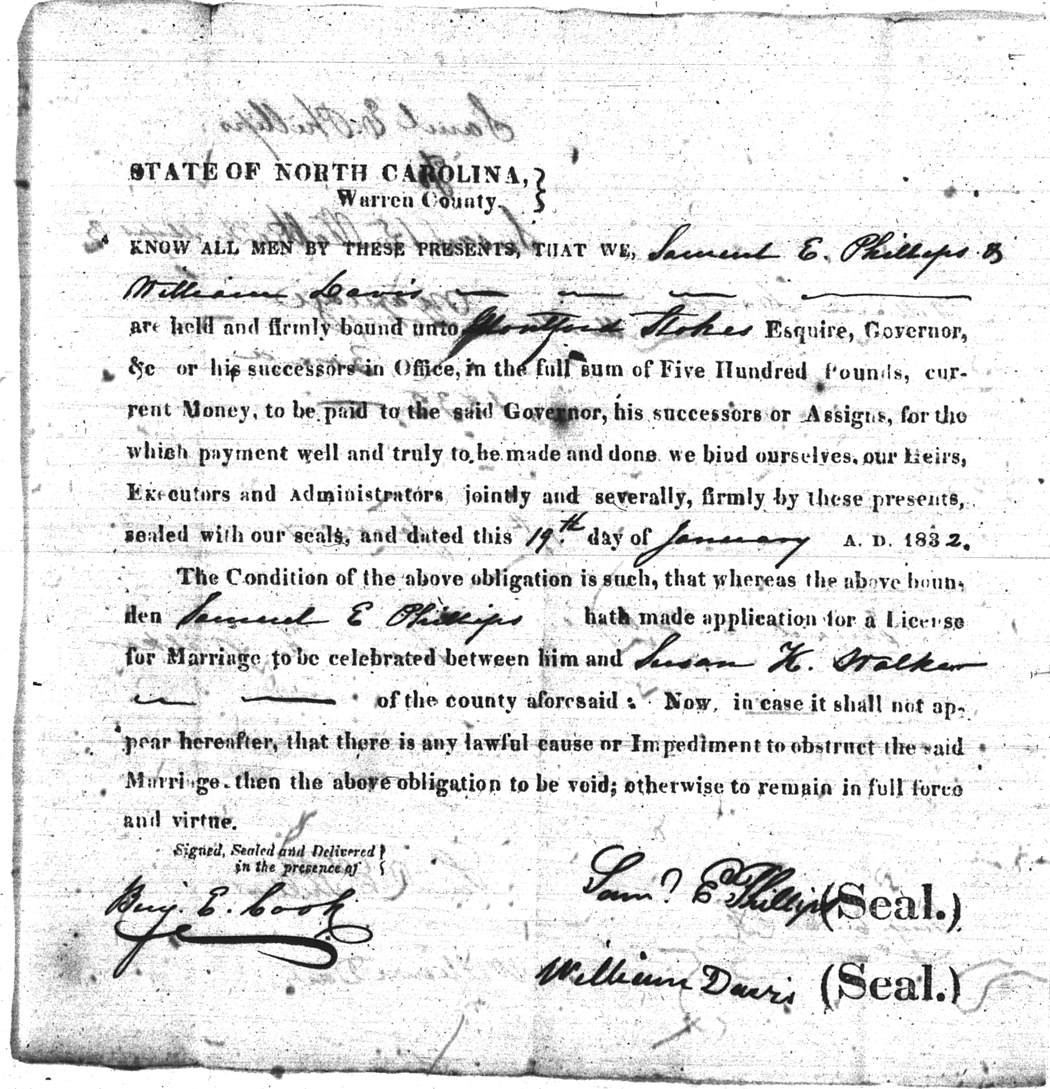 STATE OF NORTH CAROLINA,
Warren County.
KNOW ALL MEN BY THESE PRESENTS, THAT WE, Samuel E. Phillips &
William Davis
are held and firmly bound unto Montford Stokes Esquire, Governor,
&c or his successors in Office, in the full sum of Five Hundred Pounds, cur-
rent Money, to be paid to the said Governor, his successors or Assigns, for the
which payment well and truly to be made and done we bind ourselves, our Heirs,
Executors and Administrators jointly and severally, firmly by these presents,
sealed with our seals, and dated this 19th. day of January A. D. 1832.
The Condition of the above obligation is such, that whereas the above boun-
den Samuel E Phillips hath made application for a License
for Marriage to be celebrated between him and Susan K. Walker
of the county aforesaid: Now, in case it shall not ap-
pear hereafter, that there is any lawful cause or Impediment to obstruct the said
Marriage, then the above obligation to be void; otherwise to remain in full force
and virtue.
Signed, Sealed and Delivered
in the presence of
Benj. E. Cook
Saml E Phillips (Seal.)
William Davis (Seal.)